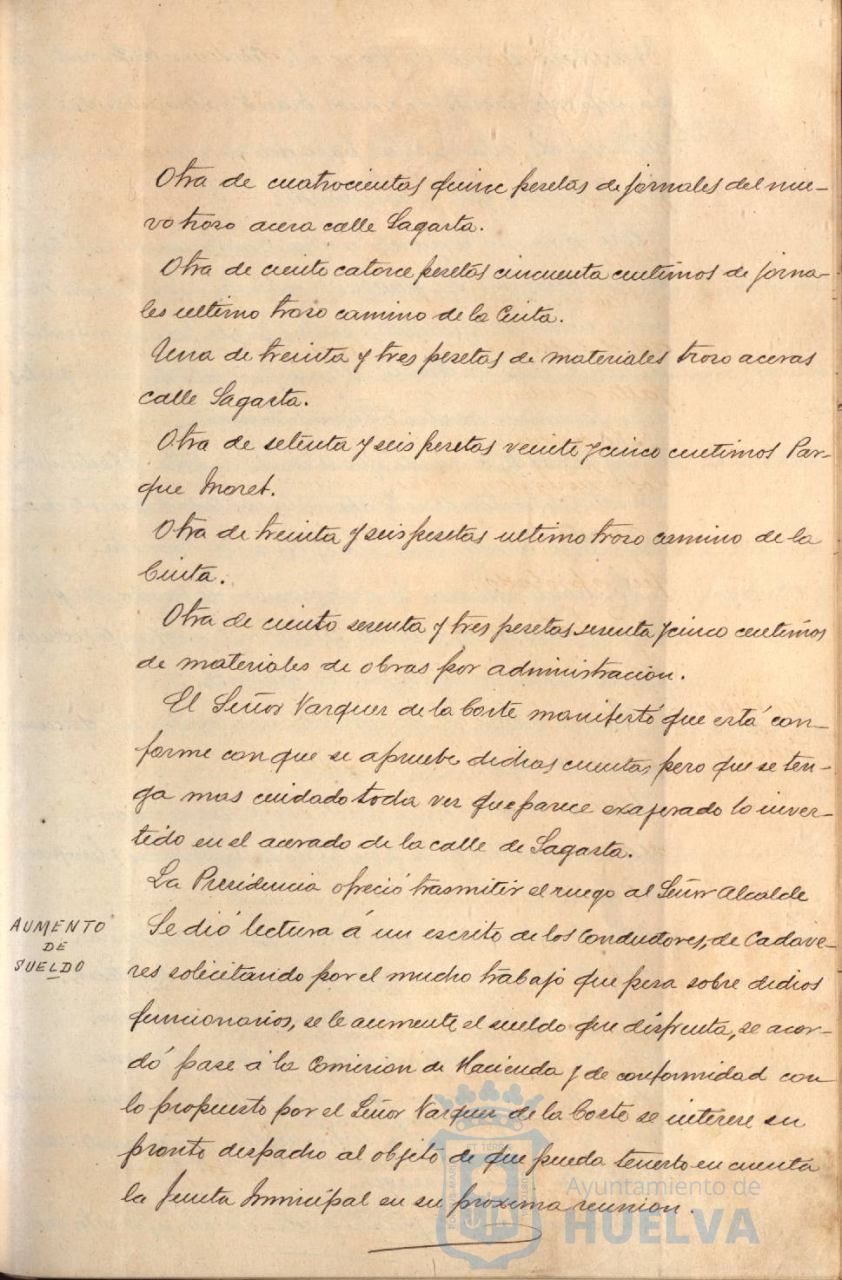 Otra de cuatrocientas quince pesetas de jornales del nue-
vo troso acera calle Sagasta.
Otra de ciento catorce pesetas cincuenta centimos de jorna-
les ultimo troso camino de la Cinta.
Una de treinta y tres pesetas de materiales troso aceras
calle Sagasta.
Otra de setenta y seis pesetas veinte y cinco centimos Par-
que Moret.
Otra de treinta y seis pesetas ultimo troso camino de la
Cinta.
Otra de ciento sesenta y tres pesetas sesenta y cinco centimos
de materiales de obras por administracion.
El Señor Vazquez de la Corte manifestó que está con-
forme con que se apruebe dichas cuentas pero que se ten-
ga mas cuidado toda vez que parece exajerado lo inver-
tido en el acerado de la calle de Sagasta.
La Presidencia ofreció trasmitir el ruego al Señor Alcalde
AUMENTO
DE
SUELDO
Se dió lectura á un escrito de los Conductores, de Cadave-
res solicitando por el mucho trabajo que pesa sobre dichos
funcionarios, se le aumente el sueldo que disfruta, se acor-
dó pase á la Comision de Hacienda y de conformidad con
lo propuesto por el Señor Vazquez de la Corte se interese su
pronto despacho al objeto de que pueda tenerlo en cuenta
la Junta Municipal en su proxima reunion.
Ayuntamiento de
HUELVA